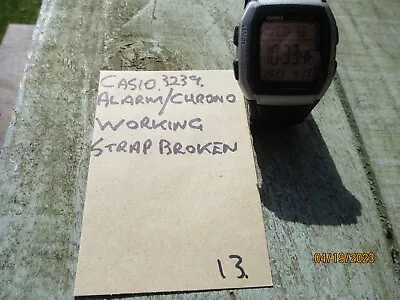 CASIO 3239.
ALARM/CHRONO
WORKING
STRAP BROKEN
13.
CASIO
10:33
04/19/2023